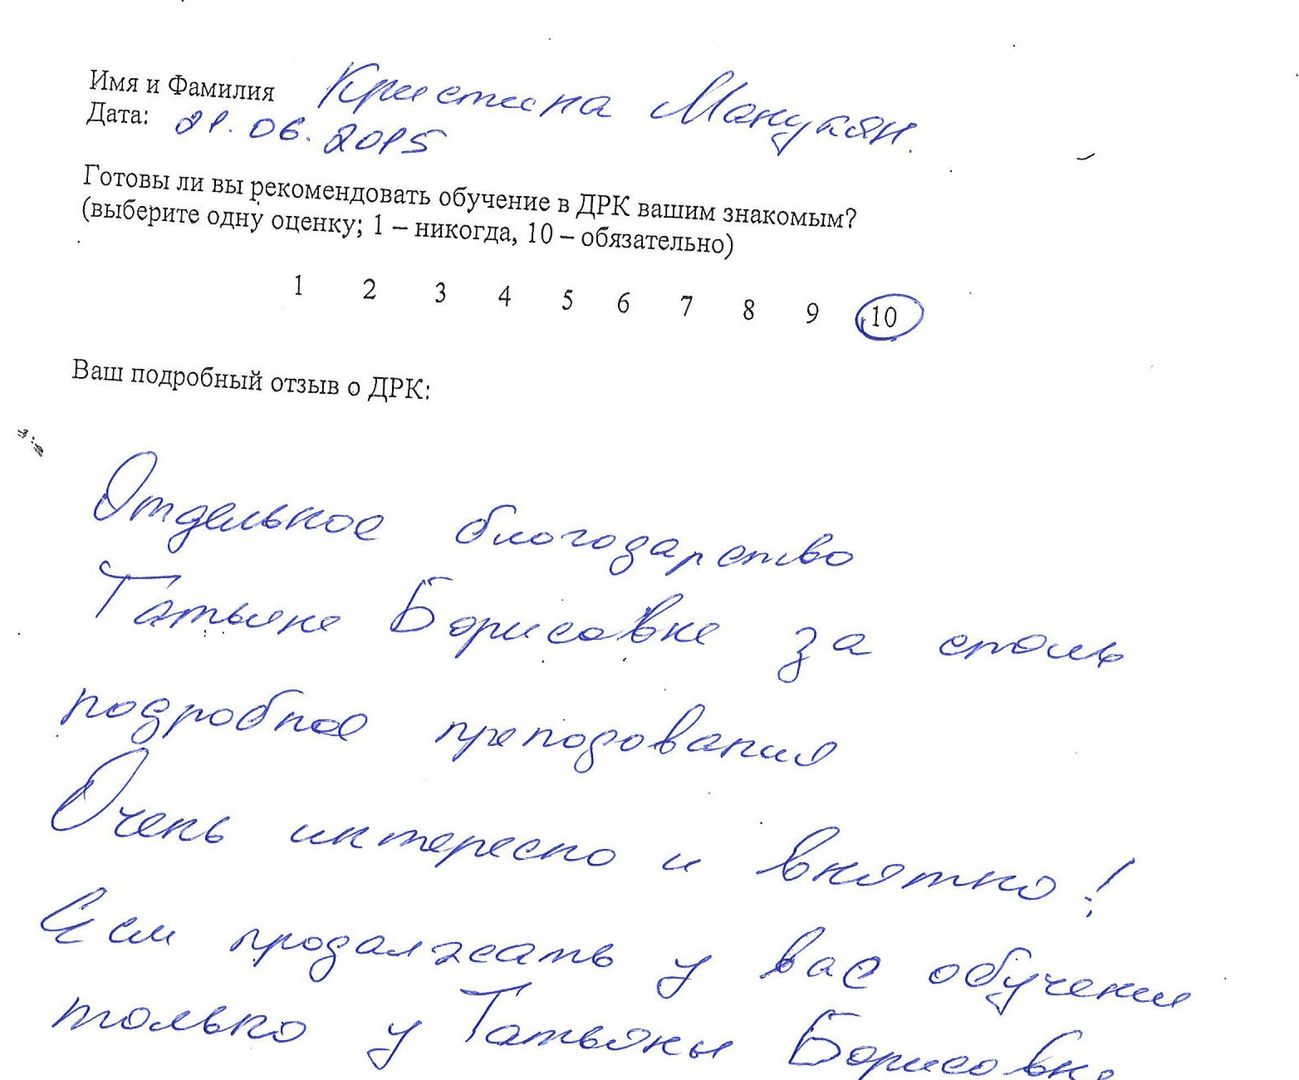 Имя и Фамилия Кристина Манукян.
Дата: 21.06.2015
Готовы ли вы рекомендовать обучение в ДРК вашим знакомым?
(выберите одну оценку; 1 – никогда, 10 – обязательно)
1 2 3 4 5 6 7 8 9 10
Ваш подробный отзыв о ДРК:
Отдельное благодарство
Татьяне Борисовне за столь
подробное преподования
Очень интересно и внятно!
Если продалжать у вас обучение
только у Татьяны Борисовны